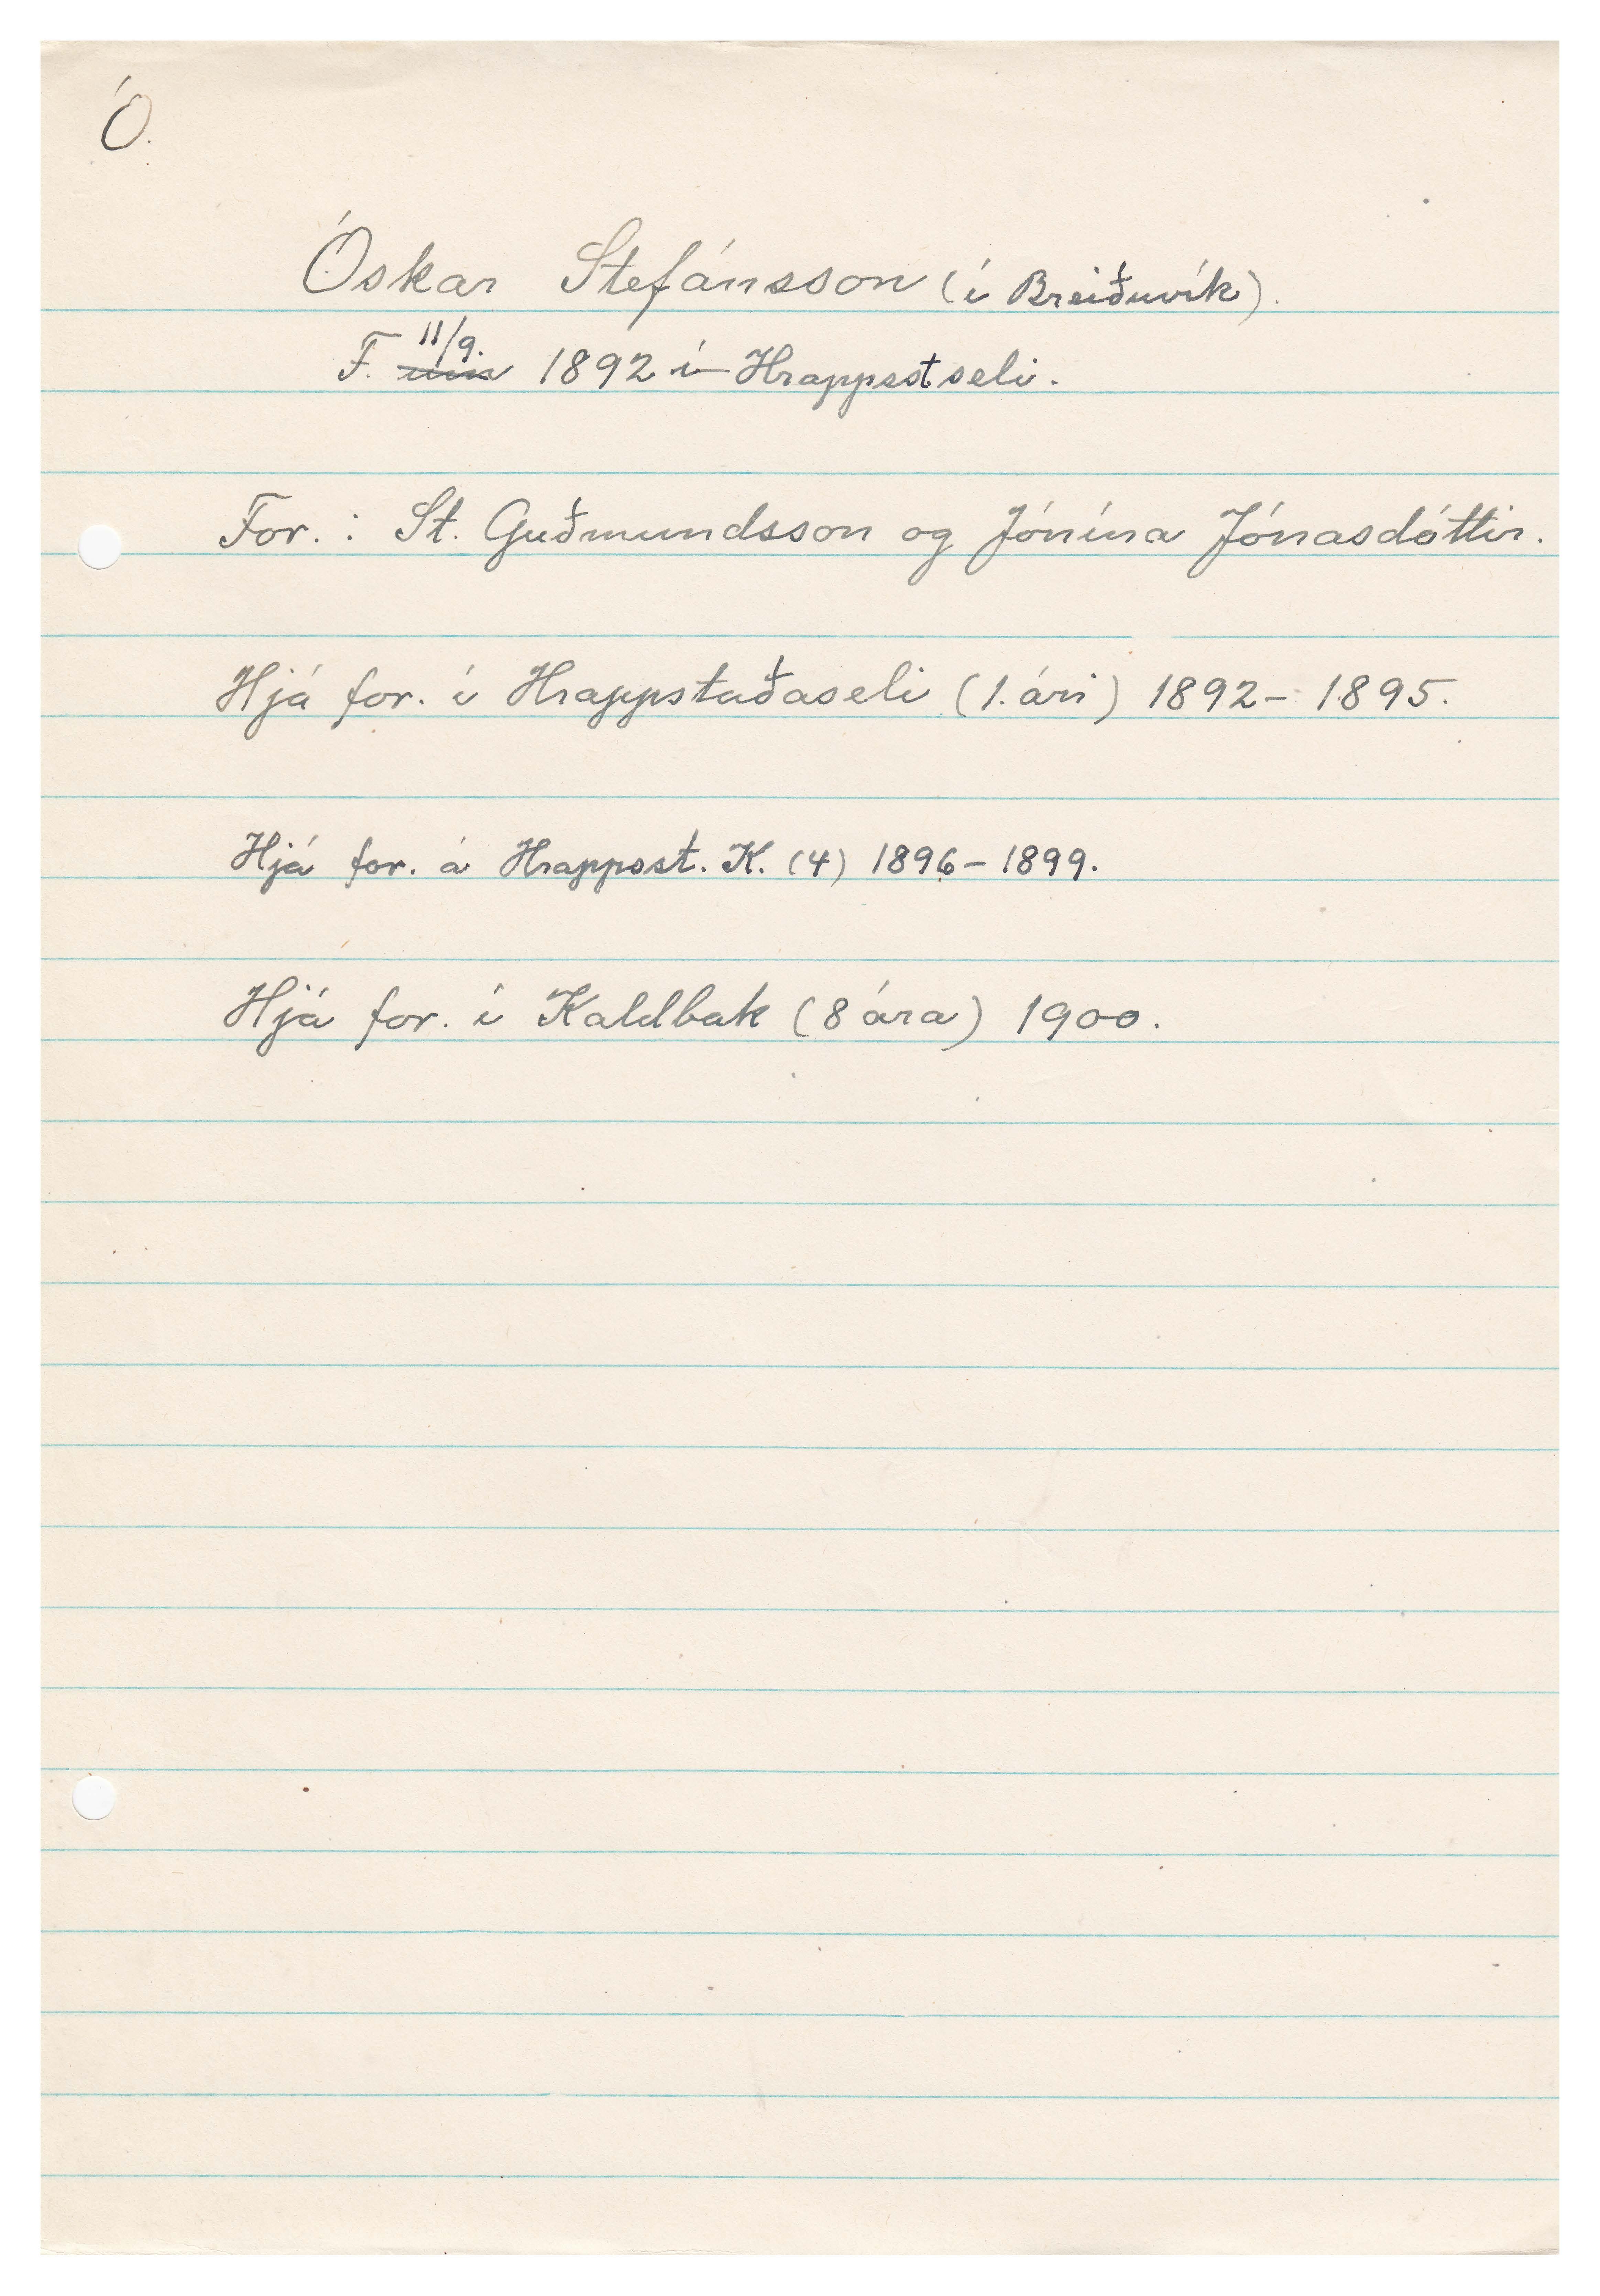 Ó.
Óskar Stefánsson (í Breiðuvík).
F. 11/9. 1892 í Hrappsstseli.
For.: St. Guðmundsson og Jónína Jónasdóttir.
Hjá for. í Hrappstaðaseli (1. ári) 1892 - 1895.
Hjá for. á Hrappsst. K. (4) 1896 - 1899.
Hjá for. í Kaldbak (8 ára) 1900.